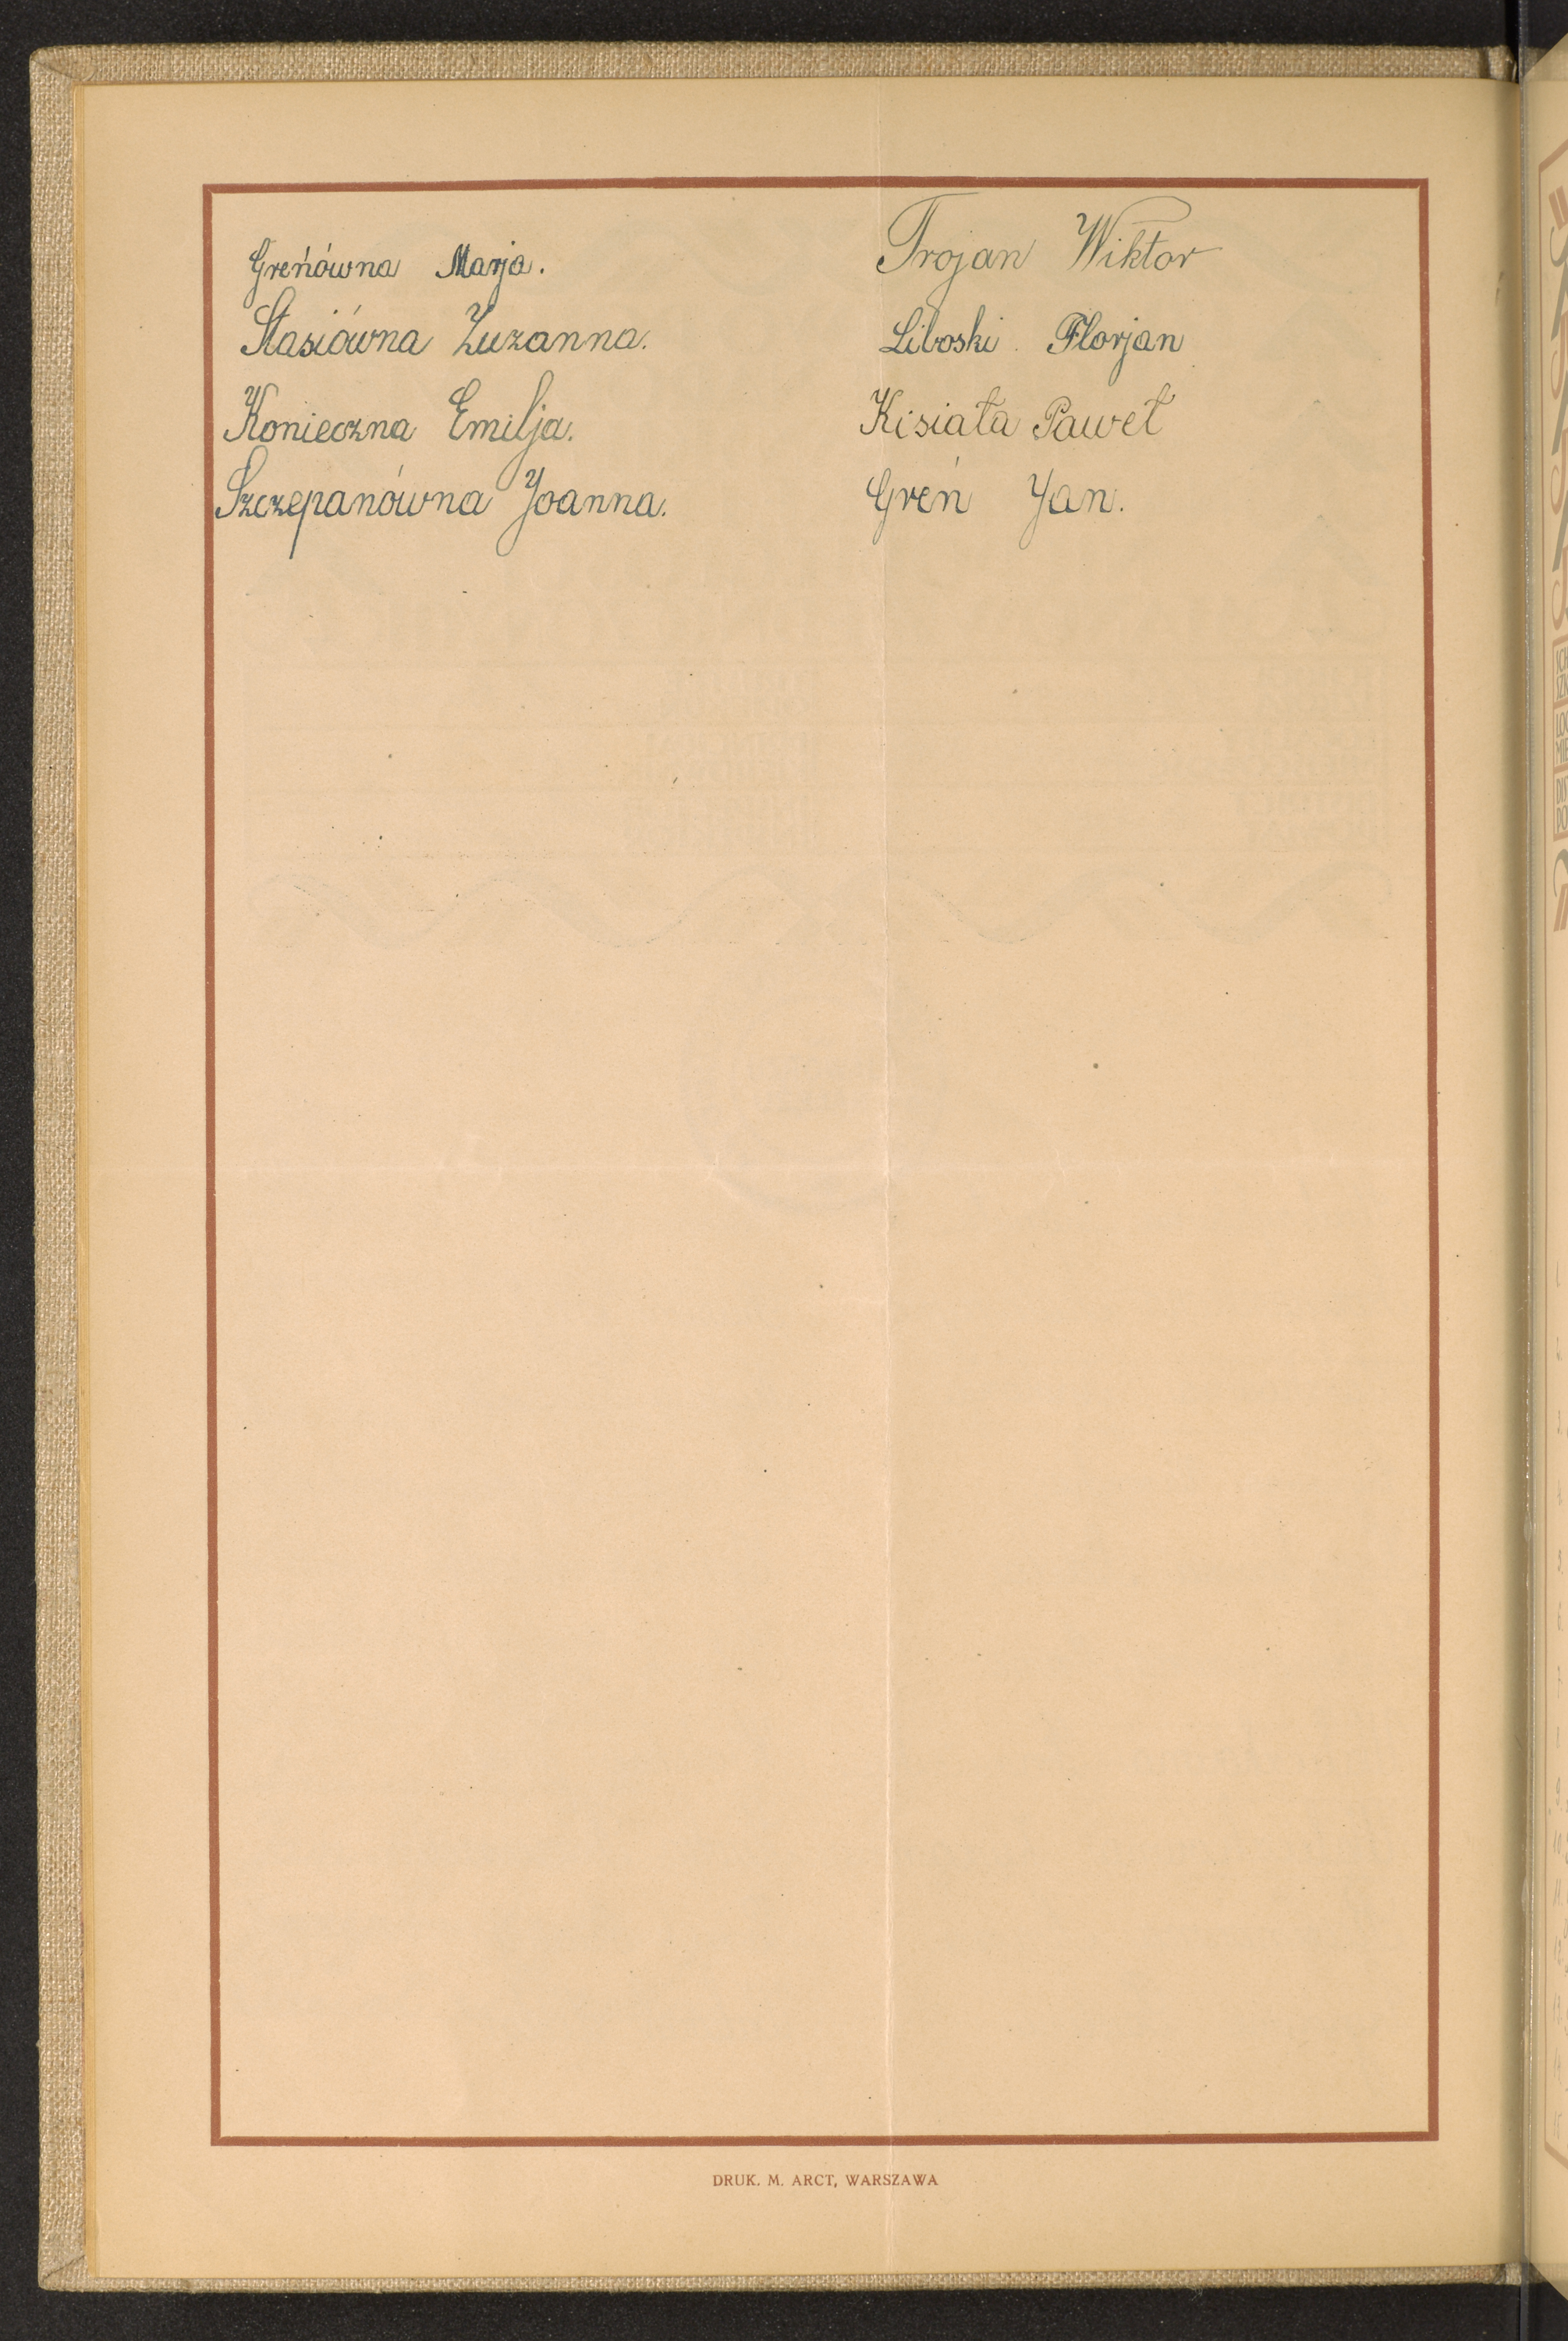 Greńówna Marja.
Stasiówna Zuzanna.
Konieczna Emilja.
Szczepanówna Joanna.
Trojan Wiktor
Liboski Florjan
Kisiała Paweł
Greń Jan.
DRUK. M. ARCT, WARSZAWA